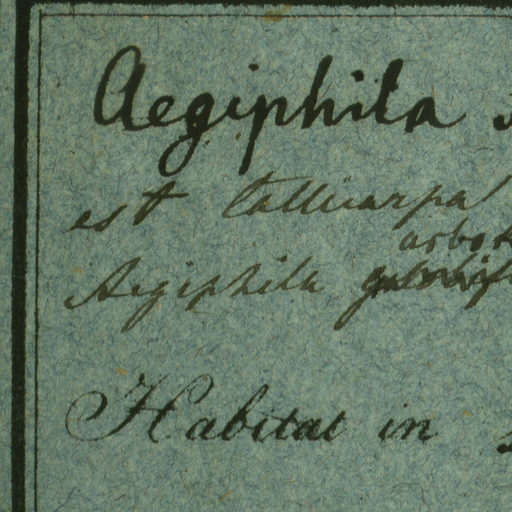 Aegiphila
est Callicarpa
Aegiphila
Habitat in